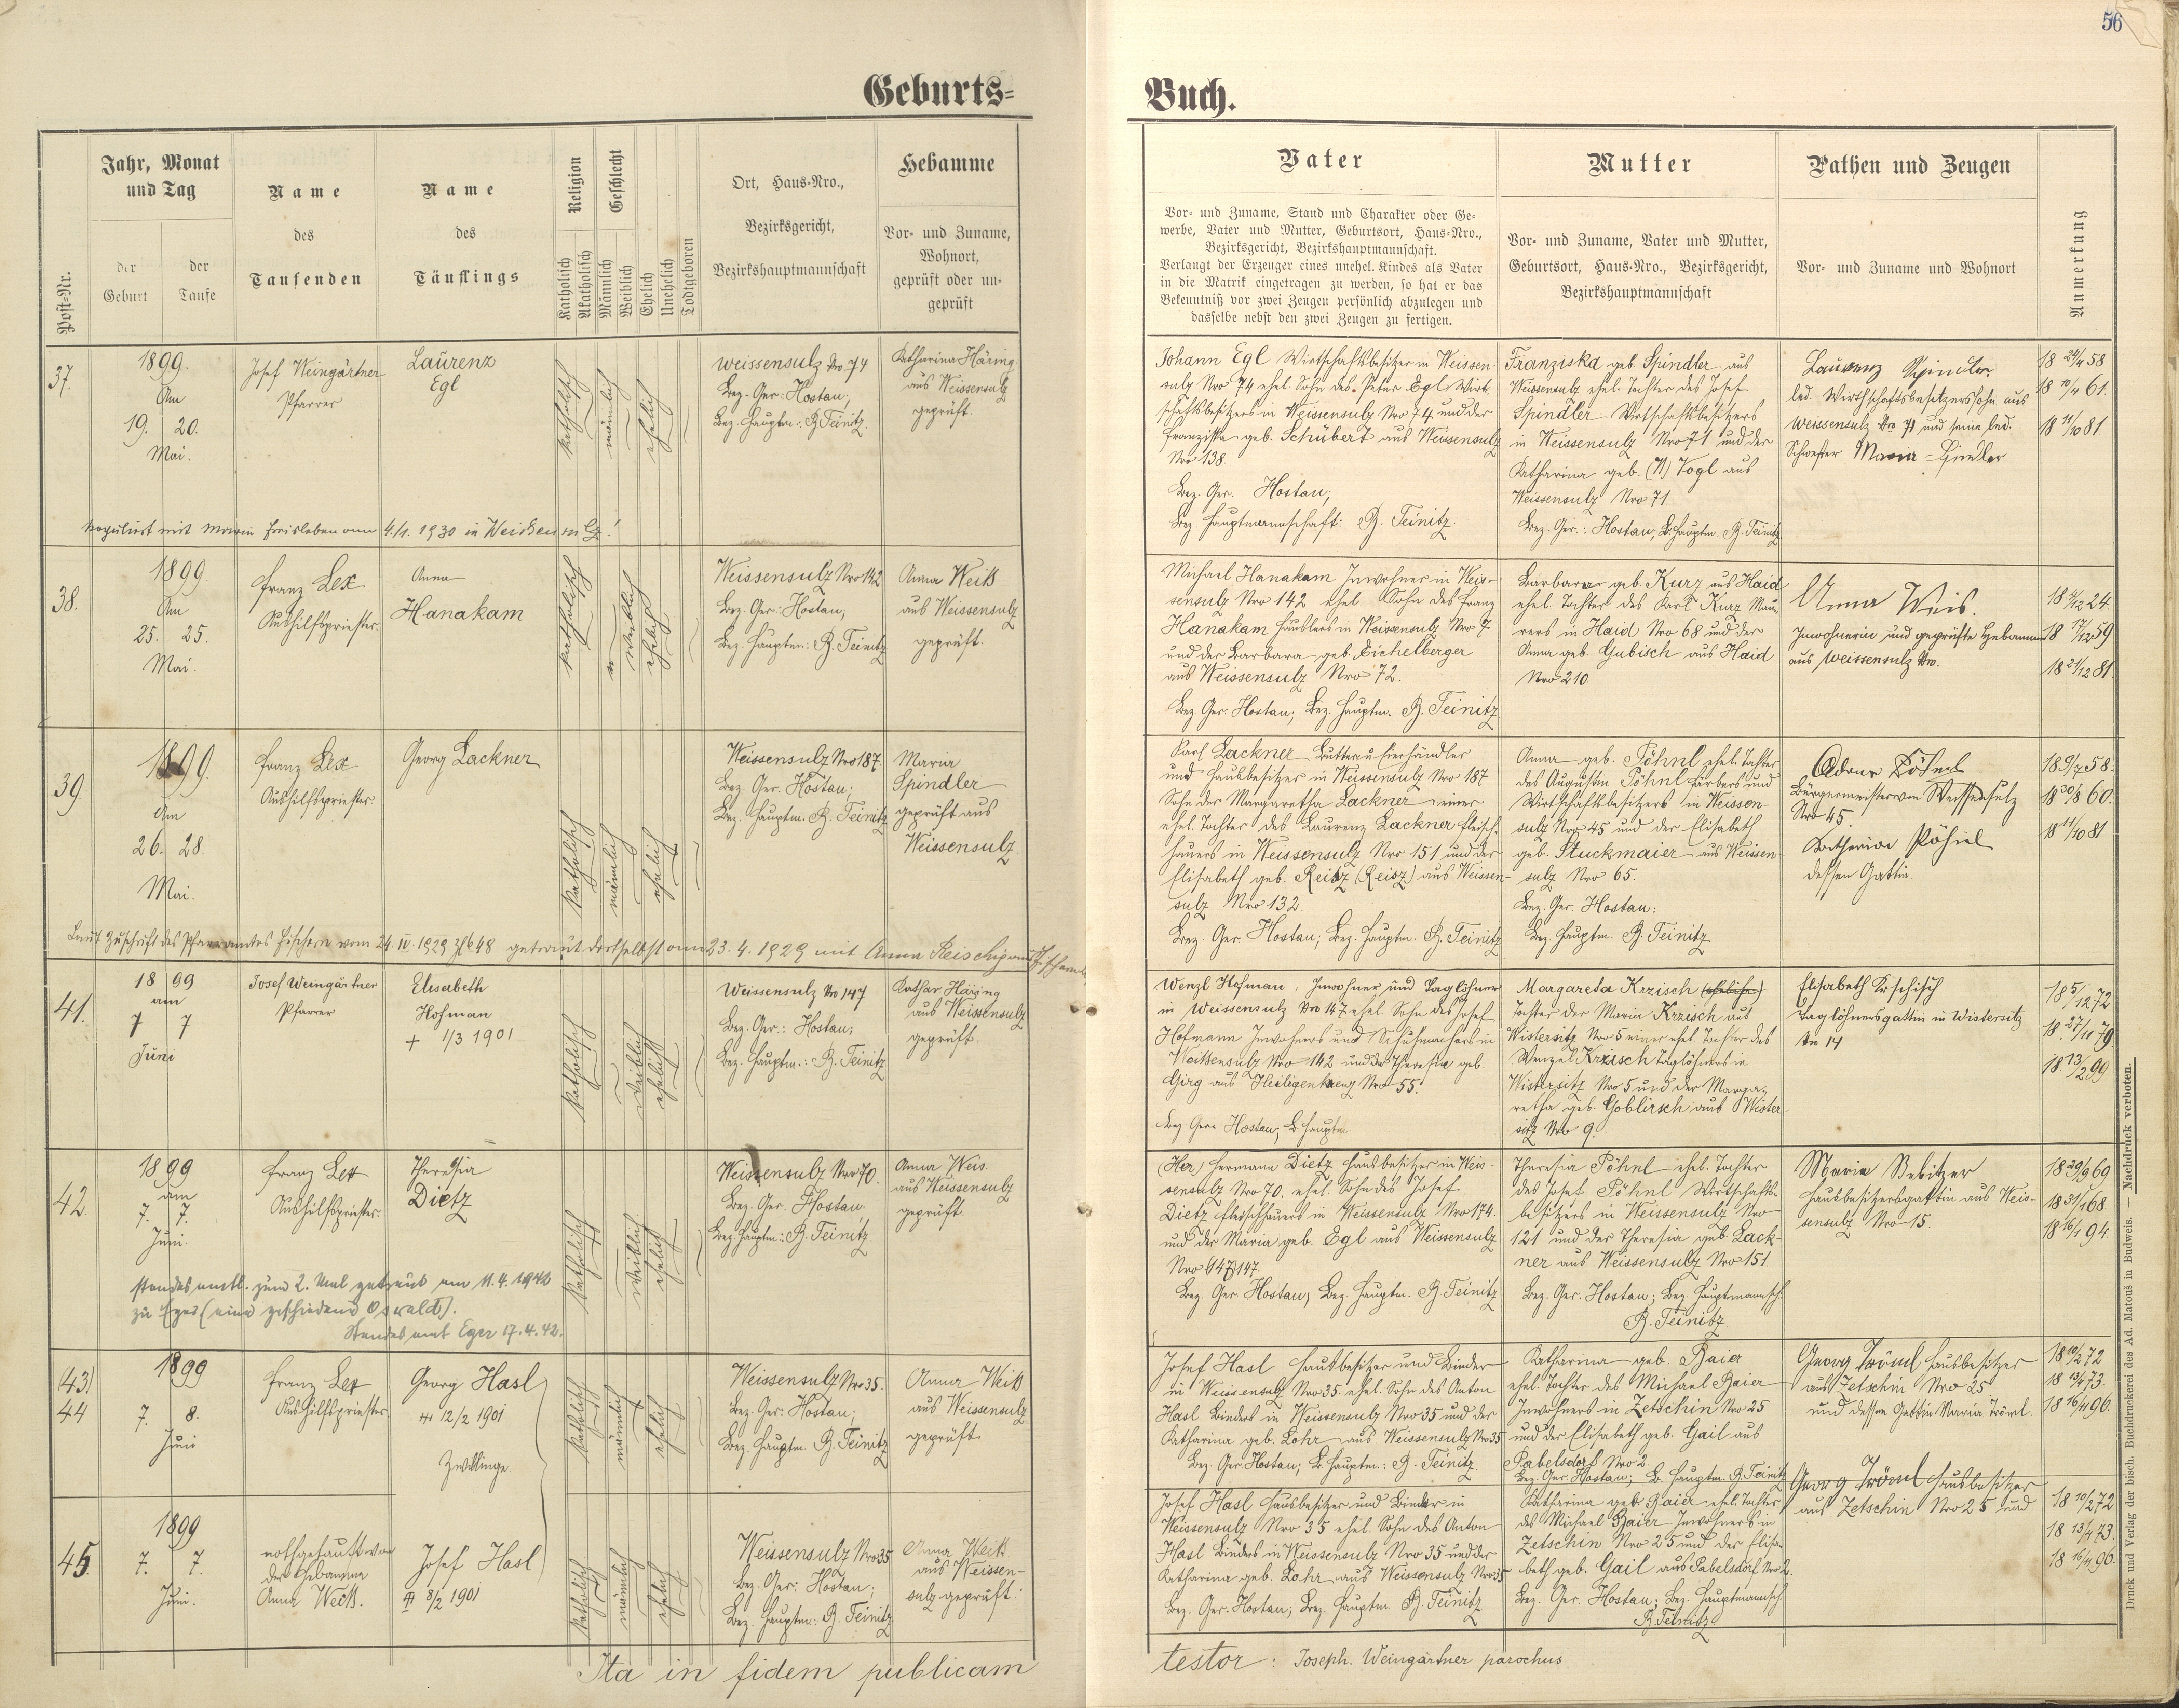 56
Geburts=
Buch.
Post-Nr.
Jahr, Monat
und Tag
der
Geburt
der
Taufe
Name
des
Taufenden
Name
des
Täuflings
Religion
Katholisch
Akatholisch
Geschlecht
Männlich
Weiblich
Ehelich
Unehelich
Todtgeboren
Ort, Haus=Nro.,
Bezirksgericht,
Bezirkshauptmannschaft
Hebamme
Vor= und Zuname,
Wohnort,
geprüft oder un=
geprüft
Vater
Vor= und Zuname, Stand und Charakter oder Ge=
werbe, Vater und Mutter, Geburtsort, Haus=Nro.,
Bezirksgericht, Bezirkshauptmannschaft.
Verlangt der Erzeuger eines unehel. Kindes als Vater
in die Matrik eingetragen zu werden, so hat er das
Bekenntniß vor zwei Zeugen persönlich abzulegen und
dasselbe nebst den zwei Zeugen zu fertigen.
Mutter
Vor= und Zuname, Vater und Mutter,
Geburtsort, Haus=Nro., Bezirksgericht,
Bezirkshauptmannschaft
Pathen und Zeugen
Vor= und Zuname und Wohnort
Anmerkung
37.
1899.
Am
19. 20.
Mai.
Josef Weingärtner
Pfarrer
Laurenz
Egl
katholisch
männlich
ehelich
Weissensulz Nro 74
Bez. Ger: Hostau;
Bez. Hauptm.: B. Teinitz.
Katharina Häring
aus Weissensulz
geprüft.
Johann Egl Wirtschaftsbesitzer in Weissen-
sulz Nro 74 ehel. Sohn des Peter Egl Wirt-
schaftsbesitzers in Weissensulz Nro 74 und der
Franziska geb. Schubert aus Weissensulz
Nro 138.
Bez. Ger. Hostau;
Bez. Hauptmannschaft: B. Teinitz.
Franziska geb. Spindler aus
Weissensulz ehel. Tochter des Josef
Spindler Wirtschaftsbesitzers
in Weissensulz Nro 71 und der
Katharina geb. Vogl aus
Weissensulz Nro 71
Bez. Ger.: Hostau, B. Hauptm. B. Teinitz
Laurenz Spindler
led. Wirthschaftsbesitzerssohn aus
Weissensulz Nro 71 und seine led.
Schwester Maria Spindler
18 10/4 61.
18 11/10 81
Kopuliert mit Maria am 4./1. 1930 in Weißensulz!
38.
1899.
Am
25. 25.
Mai.
Franz Lex
Aushilfspriester.
Anna
Hanakam
katholisch
weiblich
ehelich
Weissensulz Nro 142
Bez. Ger: Hostau;
Bez. Hauptm.: B. Teinitz
Anna Weiß
aus Weissensulz
geprüft.
Michael Hanakam Inwohner in Weis-
sensulz Nro 142 ehel. Sohn des Franz
Hanakam Häuslers in Weissensulz Nro
und der Barbara geb. Eichelberger
aus Weissensulz Nro 72.
Bez. Ger. Hostau; Bez. Hauptm. B. Teinitz
Barbara geb. Kurz aus Haid
ehel. Tochter des Karl Kurz Mau-
rers in Haid Nro 68 und der
Anna geb. Gubisch aus Haid
Nro 210.
Anna Weis.
Inwohnerin und geprüfte Hebamme
aus Weissensulz Nro.
18 17/12 59
18 21/12 81.
39.
1899.
Am
26. 28.
Mai.
Franz Lex
Aushilfspriester
Georg Lackner
katholisch
männlich
ehelich
Weissensulz Nro 187
Bez. Ger. Hostau;
Bez. Hauptm. B. Teinitz
Maria
Spindler
geprüft aus
Weissensulz
Karl Lackner Butter u. Eierhändler
und Hausbesitzer in Weissensulz Nro 187
Sohn der Margaretha Lackner einer
ehel. Tochter des Laurenz Lackner Fleisch-
hauers in Weissensulz Nro 151 und der
Elisabeth geb. Reisz (Reisz) aus Weissen-
sulz Nro 132.
Bez. Ger. Hostau; Bez. Hauptm. B. Teinitz
Anna geb. Pöhnl ehel. Tochter
des Augustin Pöhnl Färbers und
Wirtschaftsbesitzers in Weissen-
sulz Nro 45 und der Elisabeth
geb. Stuckmaier aus Weissen-
sulz Nro 65.
Bez. Ger. Hostau:
Bez. Hauptm. B. Teinitz
Pöhnl
Bürgermeister von Weissensulz
Nro 45.
Katharina Pöhnl
dessen Gattin
18 9/7 58.
18 20/8 60.
18 11/10 81
Laut Zuschrift des Pfarramtes Fischern vom 24. IV. 1929 getraut dortselbst am 23. 4. 1929 mit Anna
41.
1899
am
7 7
Juni
Josef Weingärtner
Pfarrer
Elisabeth
Hofman
+ 1/3 1901
katholisch
weiblich
ehelich
Weissensulz Nro 147
Bez. Ger.: Hostau;
Bez. Hauptm.: B. Teinitz
Kathar. Häring
aus Weissensulz
geprüft.
Wenzl Hofman, Inwohner und Taglöhner
in Weissensulz Nro 147 ehel. Sohn des Josef
Hofmann Inwohners und Schuhmachers in
Weissensulz Nro 142 und der Theresia geb.
Girg aus Heiligenkreuz Nro 55.
Bez. Ger. Hostau, B. Hauptm
Margareta Krzisch (eheliche)
Tochter der Maria Krzisch aus
Wistersitz Nro 5 einer ehel. Tochter des
Wenzel Krzisch Taglöhners in
Wistersitz Nro 5 und der Marga-
retha geb. Goblirsch aus Wister-
sitz Nro 9.
Elisabeth Krschisch
Taglöhnersgattin in Wistersitz
Nro 14
18 5/12 72
18 27/11 79
18 13/2 99
42.
1899
am
7. 7.
Juni.
Franz Lex
Aushilfspriester.
Theresia
Dietz
katholisch
weiblich
ehelich
Weissensulz Nro 70.
Bez. Ger. Hostau
Bez. Hauptm: B. Teinitz.
Anna Weis.
aus Weissensulz
geprüft.
(Her) Hermann Dietz Hausbesitzer in Weis-
sensulz Nro 70. ehel. Sohn des Josef
Dietz Fleischhauers in Weissensulz Nro 174.
und der Maria geb. Egl aus Weissensulz
Nro (147) 147.
Bez. Ger. Hostau; Bez. Hauptm. B. Teinitz
Theresia Pöhnl ehel. Tochter
des Josef Pöhnl Wirtschafts-
besitzers in Weissensulz Nro
121 und der Theresia geb. Lack-
ner aus Weissensulz Nro 151.
Bez. Ger. Hostau; Bez. Hauptmannsch.
B. Teinitz.
Maria
Hausbesitzersgattin aus Weis-
sensulz Nro 15.
18 29/9 69
18 31/1 68.
18 16/1 94.
standesamtl. zum 2. Mal getraut am 11. 4. 1942
zu Eger (eine geschiedene Oswald).
Standesamt Eger 17. 4. 42.
(43)
44
1899
7. 8.
Juni
Franz Lex
Aushilfspriester
Georg Hasl
12/2 1901
Zwillinge.
katholisch
männlich
ehelich
Weissensulz Nro 35.
Bez. Ger: Hostau;
Bez. Hauptm. B. Teinitz
Anna Weiß
aus Weissensulz
geprüft
Josef Hasl Hausbesitzer und Binder
in Weissensulz Nro 35. ehel. Sohn des Anton
Hasl Binders in Weissensulz Nro 35 und der
Katharina geb. Lohr aus Weissensulz Nro 35
Bez. Ger. Hostau; B. Hauptm.: B. Teinitz
Katharina geb. Baier
ehel. Tochter des Michael Baier
Inwohners in Zetschin Nro 25
und der Elisabeth geb. Gail aus
Pabelsdorf Nro 2.
Bez. Ger. Hostau; B. Hauptm. B. Teinitz
Georg Tröml Hausbesitzer
aus Zetschin Nro 25
und dessen Gattin Maria Tröml.
18 10/2 72
18 13/4 73.
18 16/4 96.
45.
1899
7. 7.
Juni.
nothgetauft von
der Hebamme
Anna Weiß.
Josef Hasl
8/2 1901
katholisch
männlich
ehelich
Weissensulz Nro 35
Bez. Ger: Hostau;
Bez. Hauptm: B. Teinitz
Anna Weiß.
aus Weissen-
sulz geprüft.
Josef Hasl Hausbesitzer und Binder in
Weissensulz Nro 35 ehel. Sohn des Anton
Hasl Binders in Weissensulz Nro 35 und der
Katharina geb. Lohr aus Weissensulz Nro 35
Bez. Ger. Hostau; Bez. Hauptm. B. Teinitz
Katharina geb. Baier ehel. Tochter
des Michael Baier Inwohners in
Zetschin Nro 25 und der Elisa-
beth geb. Gail aus Pabelsdorf Nro 2.
Bez. Ger. Hostau; Bez. Hauptmannsch.
B. Teinitz
Georg Tröml Hausbesitzer
aus Zetschin Nro 25 und
18 10/2 72
18 13/4 73.
18 16/4 96.
Ita in fidem publicam
testor: Joseph. Weingärtner parochus
Druck und Verlag der bisch. Buchdruckerei des Ad. Matouš in Budweis. — Nachdruck verboten.